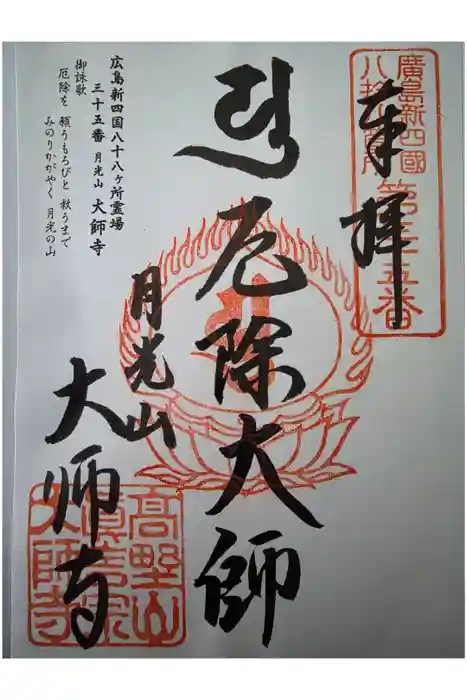 廣島新四國
八拾八ヶ所
第三十五番
奉拝
厄除大師
月光山
大师寺
高野山
真言宗
大師寺
広島新四国八十八ヶ所霊場
三十五番 月光山 大師寺
御詠歌
厄除を 願うもろびと 救うまで
みのりかがやく 月光の山